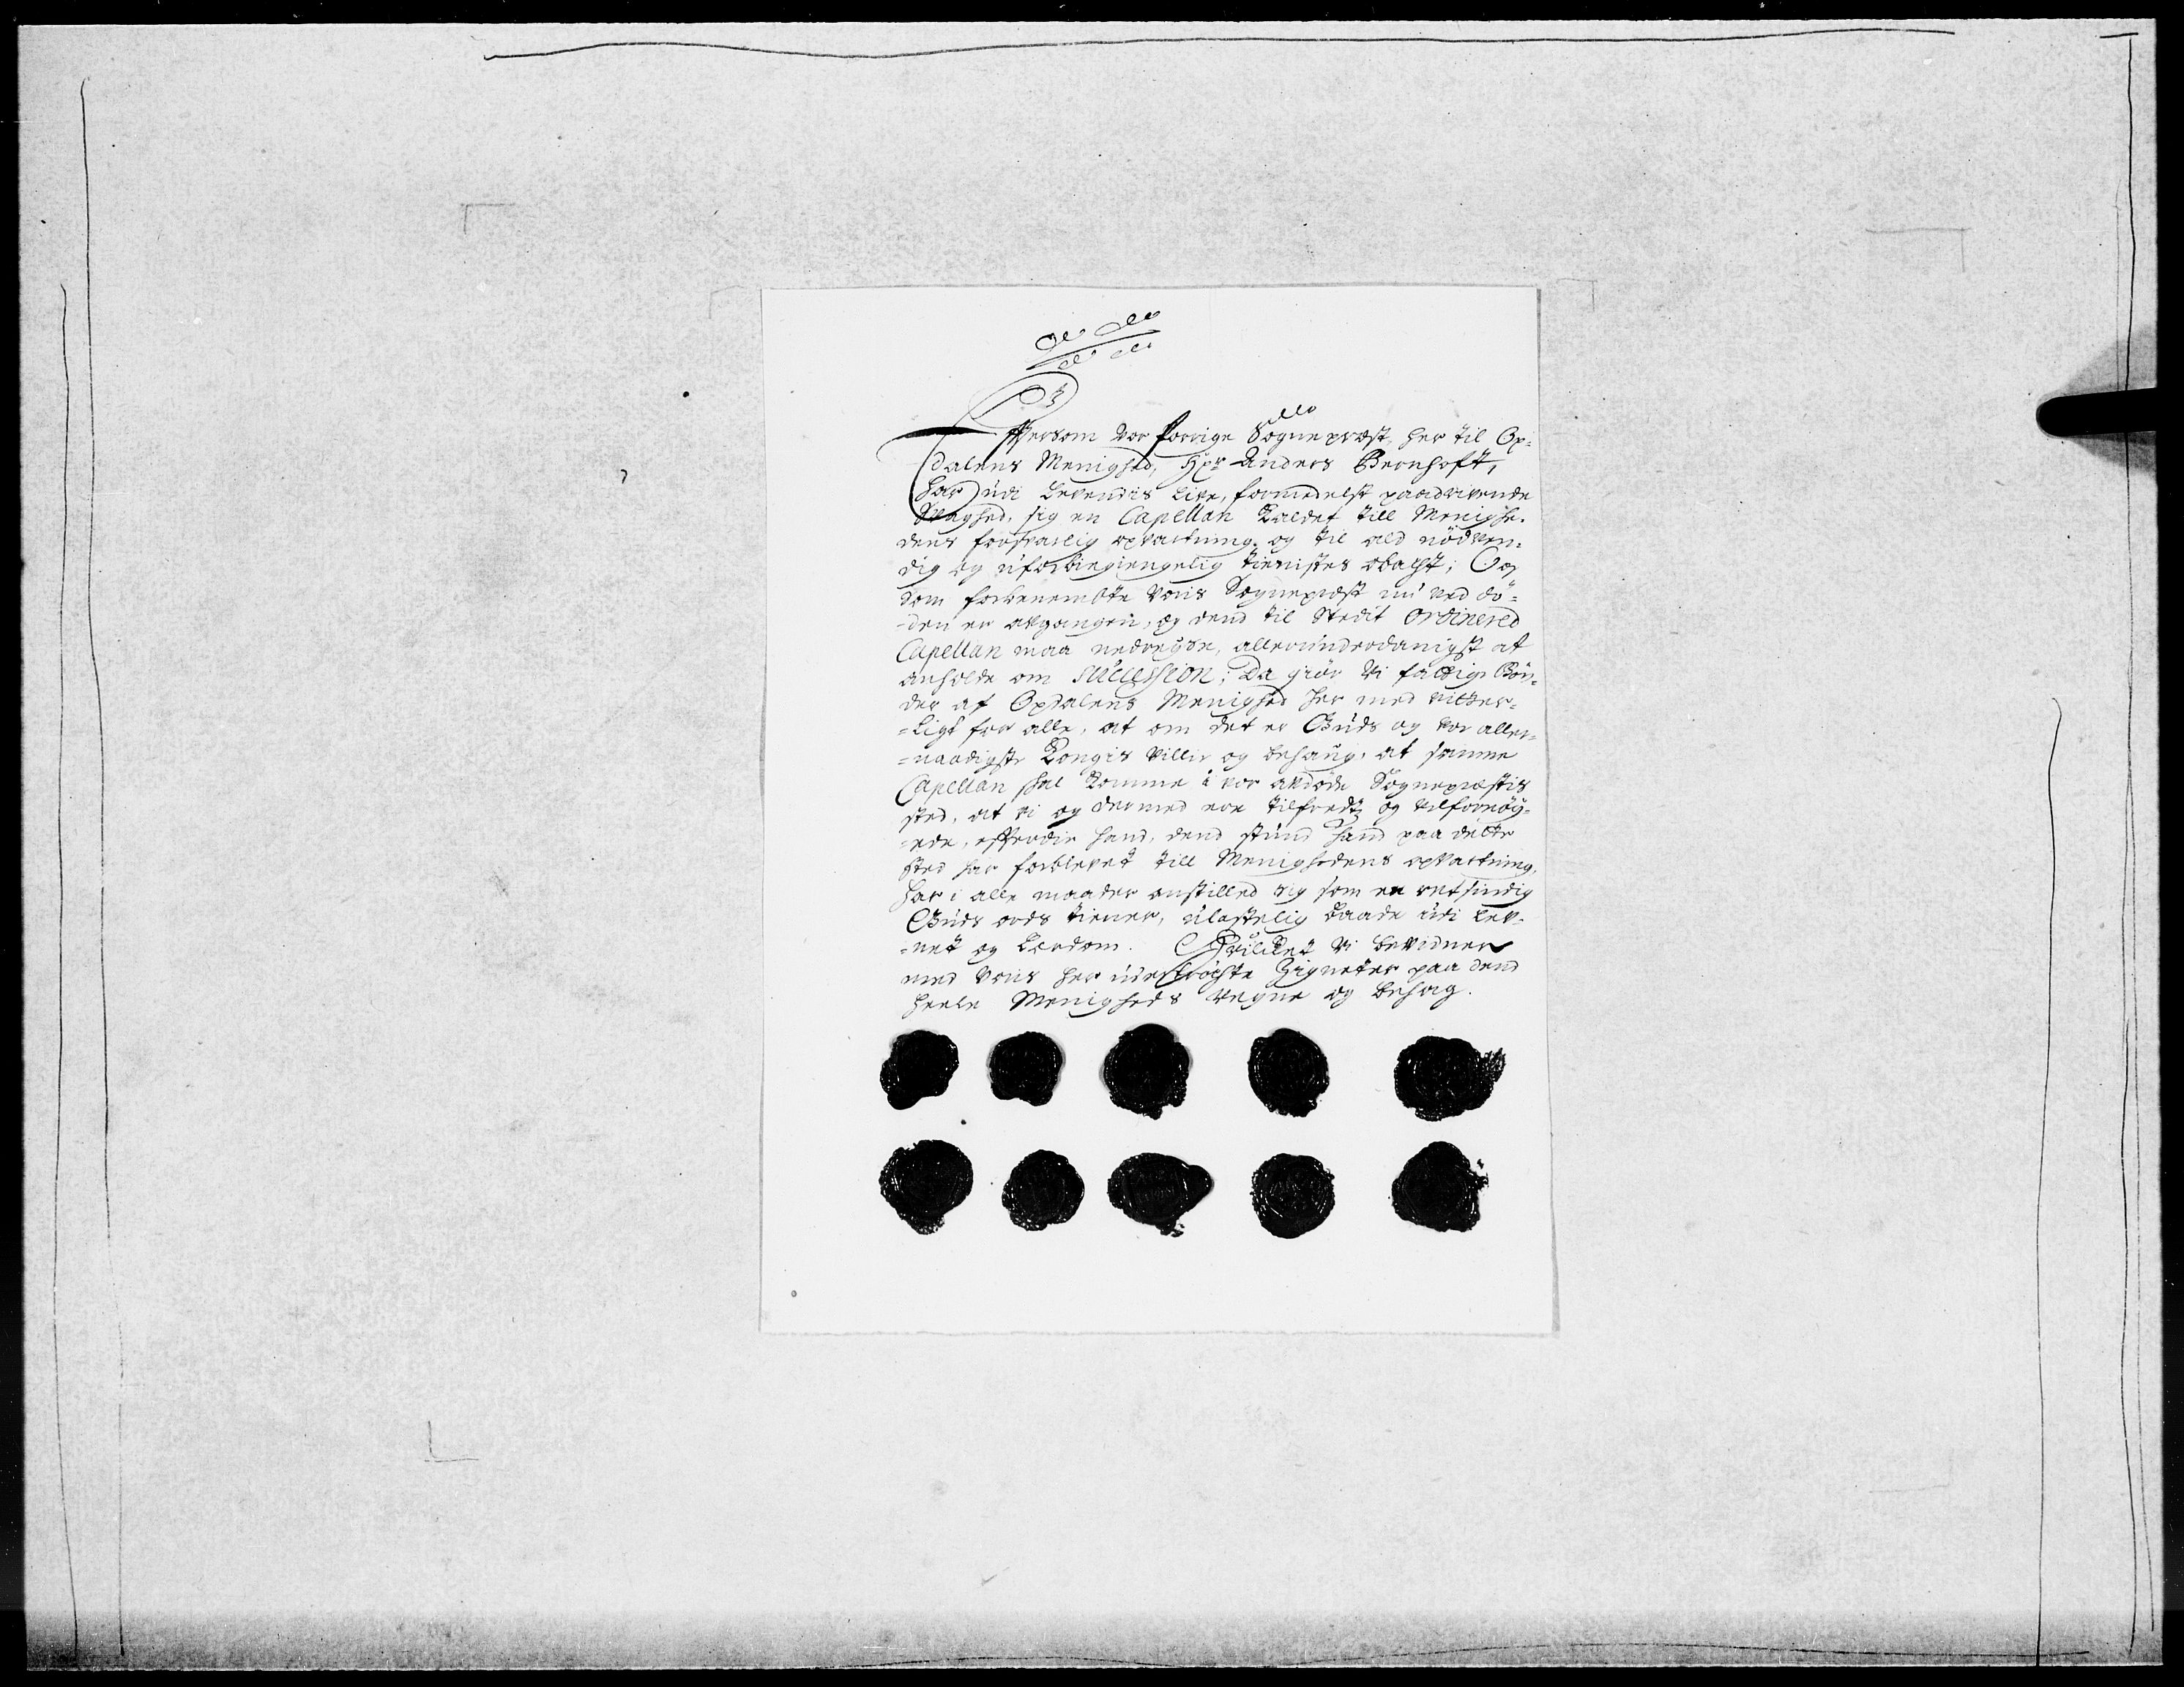 Efftersom Vor forrige Sognepræst, her til Op=
dalens Menighed, Hr: Anders Bernhoft,
har udi Levendis Live, formedelst paadrivende
Svaghed, sig en Capellan Kaldet till Menighe-
dens forsvarlig opvartning, og til ald nödven-
dig og uforbiegiengelig tienistes obacht; Og
som forbenembte Voris Sognepræst nu ved dö=
=den er afgangen, og dend til Stedit Ordinered
Capellan maa nedreyse, allerunderdanigst at
anholde om Succession: Da giör Vi fattige Bön=
der af Opdalens Menighed her med vitter=
=ligt for alle, at om det er Guds og vor aller=
=naadigste Kongis Villie og behaug, at samme
Capellan skal Komme i vor afdöde Sognepræstis
sted, at vi og dermed ere tilfredtz og velfornöy=
=ede, efterdie hand, dend stund hand paa dette
sted har forblevet till Menighedens opvartning,
har i alle maader anstilled sig som en retsindig
Guds ords tiener, ulastelig baade udi lev-
=net og Lærdom. Hvilcket Vi bevidner
med Voris her under tröchte Zigneter paa dend
heele Menigheds Vegne og behag.